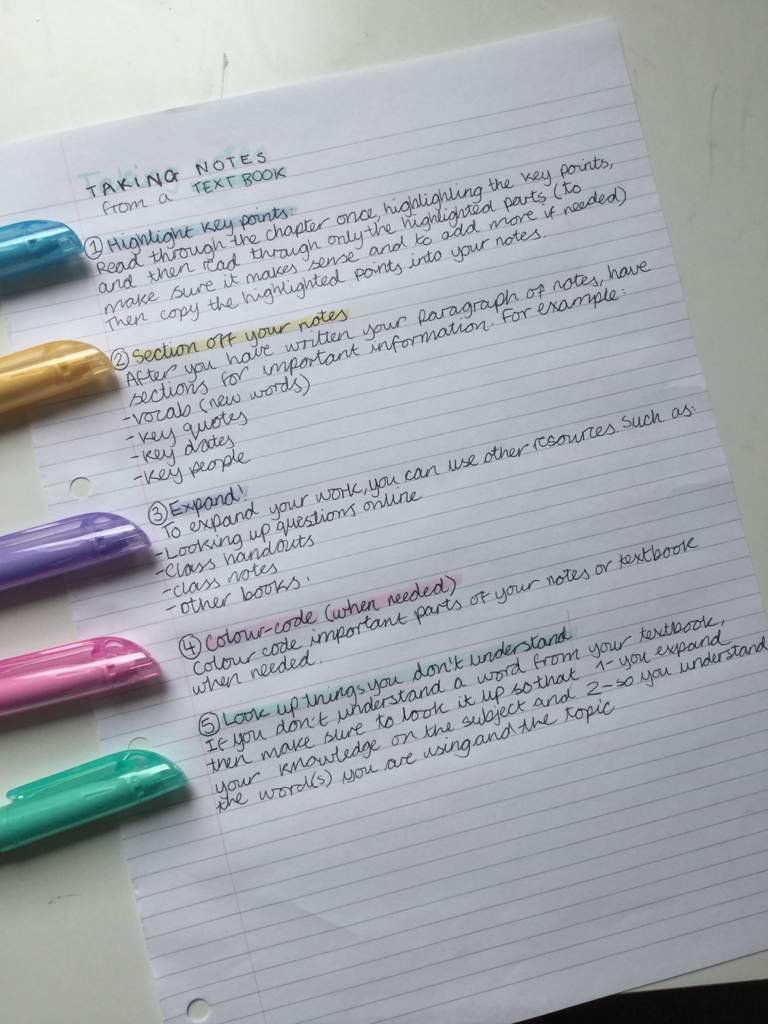 TAKING NOTES
from a TEXTBOOK
① Highlight key points:
Read through the chapter once, highlighting the key points,
and then read through only the highlighted parts (to
make sure it makes sense and to add more if needed)
Then copy the highlighted points into your notes.
② Section off your notes
After you have written your paragraph of notes, have
sections for important information. For example:
- vocab (new words)
- key quotes
- key dates
- key people
③ Expand!
To expand your work, you can use other resources. Such as:
- Looking up questions online
- Class handouts
- class notes
- other books.
④ Colour-code (when needed)
Colour code important parts of your notes or textbook
when needed.
⑤ Look up things you don't understand
If you don't understand a word from your textbook,
then make sure to look it up so that 1- you expand
your knowledge on the subject and 2- so you understand
the word(s) you are using and the topic